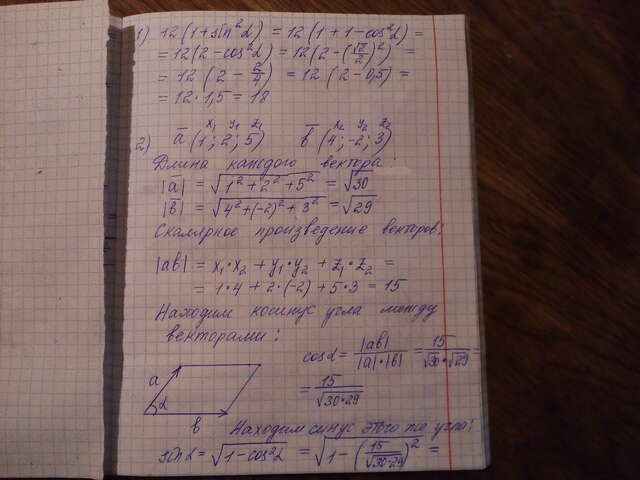 1) 12(1+sin²α) = 12(1+1-cos²α) =
= 12(2-cos²α) = 12(2-(√2/2)²) =
= 12(2 - 2/4) = 12(2-0,5) =
= 12·1,5 = 18
x₁ y₁ z₁ x₂ y₂ z₂
2) a̅ (1; 2; 5) b̅ (4; -2; 3)
Длина каждого вектора:
|a̅| = √(1²+2²+5²) = √30
|b̅| = √(4²+(-2)²+3²) = √29
Скалярное произведение векторов:
|ab| = x₁·x₂ + y₁·y₂ + z₁·z₂ =
= 1·4 + 2·(-2) + 5·3 = 15
Находим косинус угла между
векторами:
cosα = |ab|/(|a|·|b|) = 15/(√30·√29) =
= 15/√(30·29)
a
α
b
Находим синус этого же угла:
sinα = √(1-cos²α) = √(1-(15/√(30·29))²) =